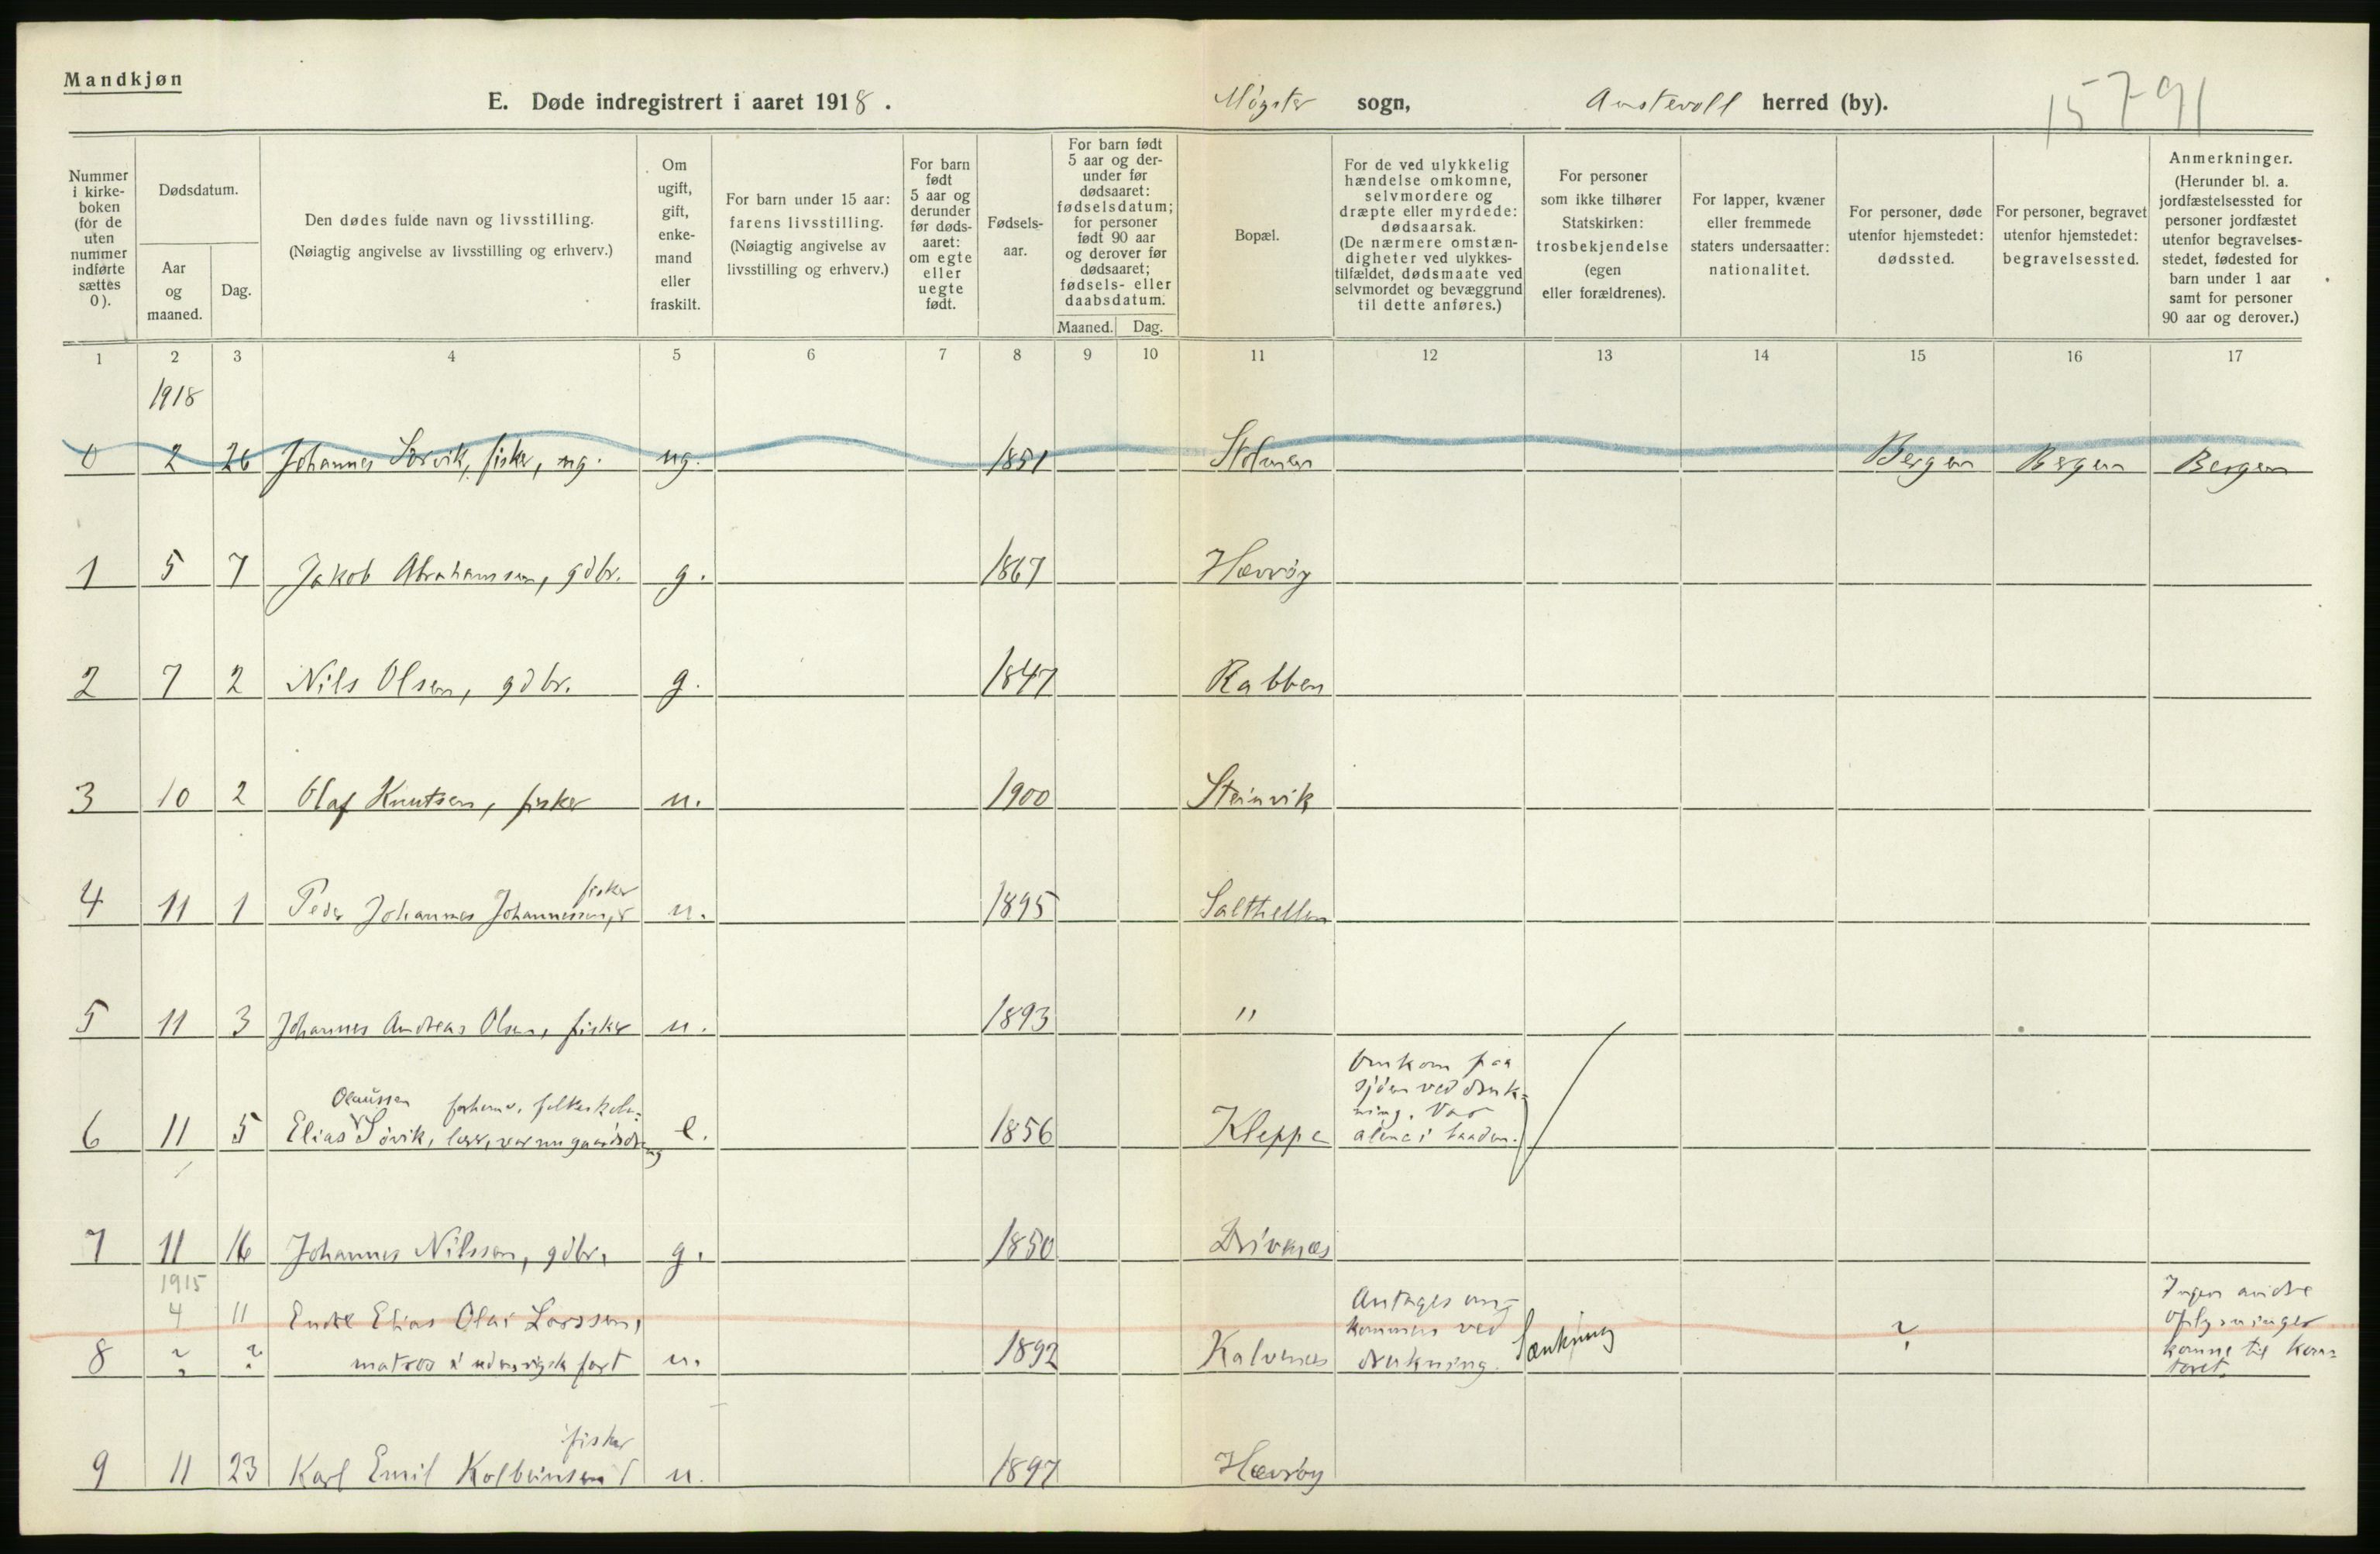 Mandkjøn
E. Døde indregistrert i aaret 1918. Møgster sogn, Austevoll herred (by). 15791
Nummer i kirke- boken (for de uten nummer indførte sættes 0).
Dødsdatum.
Aar og maaned.
Dag.
Den dødes fulde navn og livsstilling.
(Nøiagtig angivelse av livsstilling og erhverv.)
Om ugift, gift, enke- mand eller fraskilt.
For barn under 15 aar: farens livsstilling. (Nøiagtig angivelse av livsstilling og erhverv.)
For barn født 5 aar og derunder før døds- aaret: om egte eller uegte født.
Fødsels- aar.
For barn født 5 aar og der- under før dødsaaret: fødselsdatum; for personer født 90 aar og derover før dødsaaret; fødsels- eller daabsdatum.
Maaned. Dag.
Bopæl.
For de ved ulykkelig hændelse omkomne, selvmordere og dræpte eller myrdede: dødsaarsak. (De nærmere omstæn- digheter ved ulykkes- tilfældet, dødsmaate ved selvmordet og bevæggrund til dette anføres.)
For personer som ikke tilhører Statskirken: trosbekjendelse (egen eller forældrenes).
For lapper, kvæner eller fremmede staters undersaatter: nationalitet.
For personer, døde utenfor hjemstedet: dødssted.
For personer, begravet utenfor hjemstedet: begravelsessted.
Anmerkninger. (Herunder bl. a. jordfæstelsessted for personer jordfæstet utenfor begravelses- stedet, fødested for barn under 1 aar samt for personer 90 aar og derover.)
1 2 3 4 5 6 7 8 9 10 11 12 13 14 15 16 17
1918
0 2 26 Johannes Sørvik, fisker, ug. ug. 1851 Stolmen Bergen Bergen Bergen
1 5 7 Jakob Abrahamsen, gdbr. g. 1867 Hævrøy
2 7 2 Nils Olsen, gdbr. g. 1847 Rabben
3 10 2 Olaf Knutsen, fisker u. 1900 Steinvik
fisker
4 11 1 Peder Johannes Johannessen, u. 1895 Salthellen
5 11 3 Johannes Andreas Olsen, fisker u. 1893 "
Omkom paa
sjøen ved druk-
Olaussen forhenv. folkeskole- ning. Var
6 11 5 Elias Søvik, lær, var nu gaardsdreng e. 1856 Kleppe alene i baaden.
7 11 16 Johannes Nilssen, gdbr. g. 1850 Drivenes
1915
4 11 Endre Elias Olai Larssen, Antages om- Ingen andre
kommen ved oplysninger
8 ? ? matros i udenrigsk fart u. 1892 Kalvenes drukning. Sænkning ? komne til kon-
toret.
fisker
9 11 23 Karl Emil Kolbeinsen u. 1897 Hævrøy